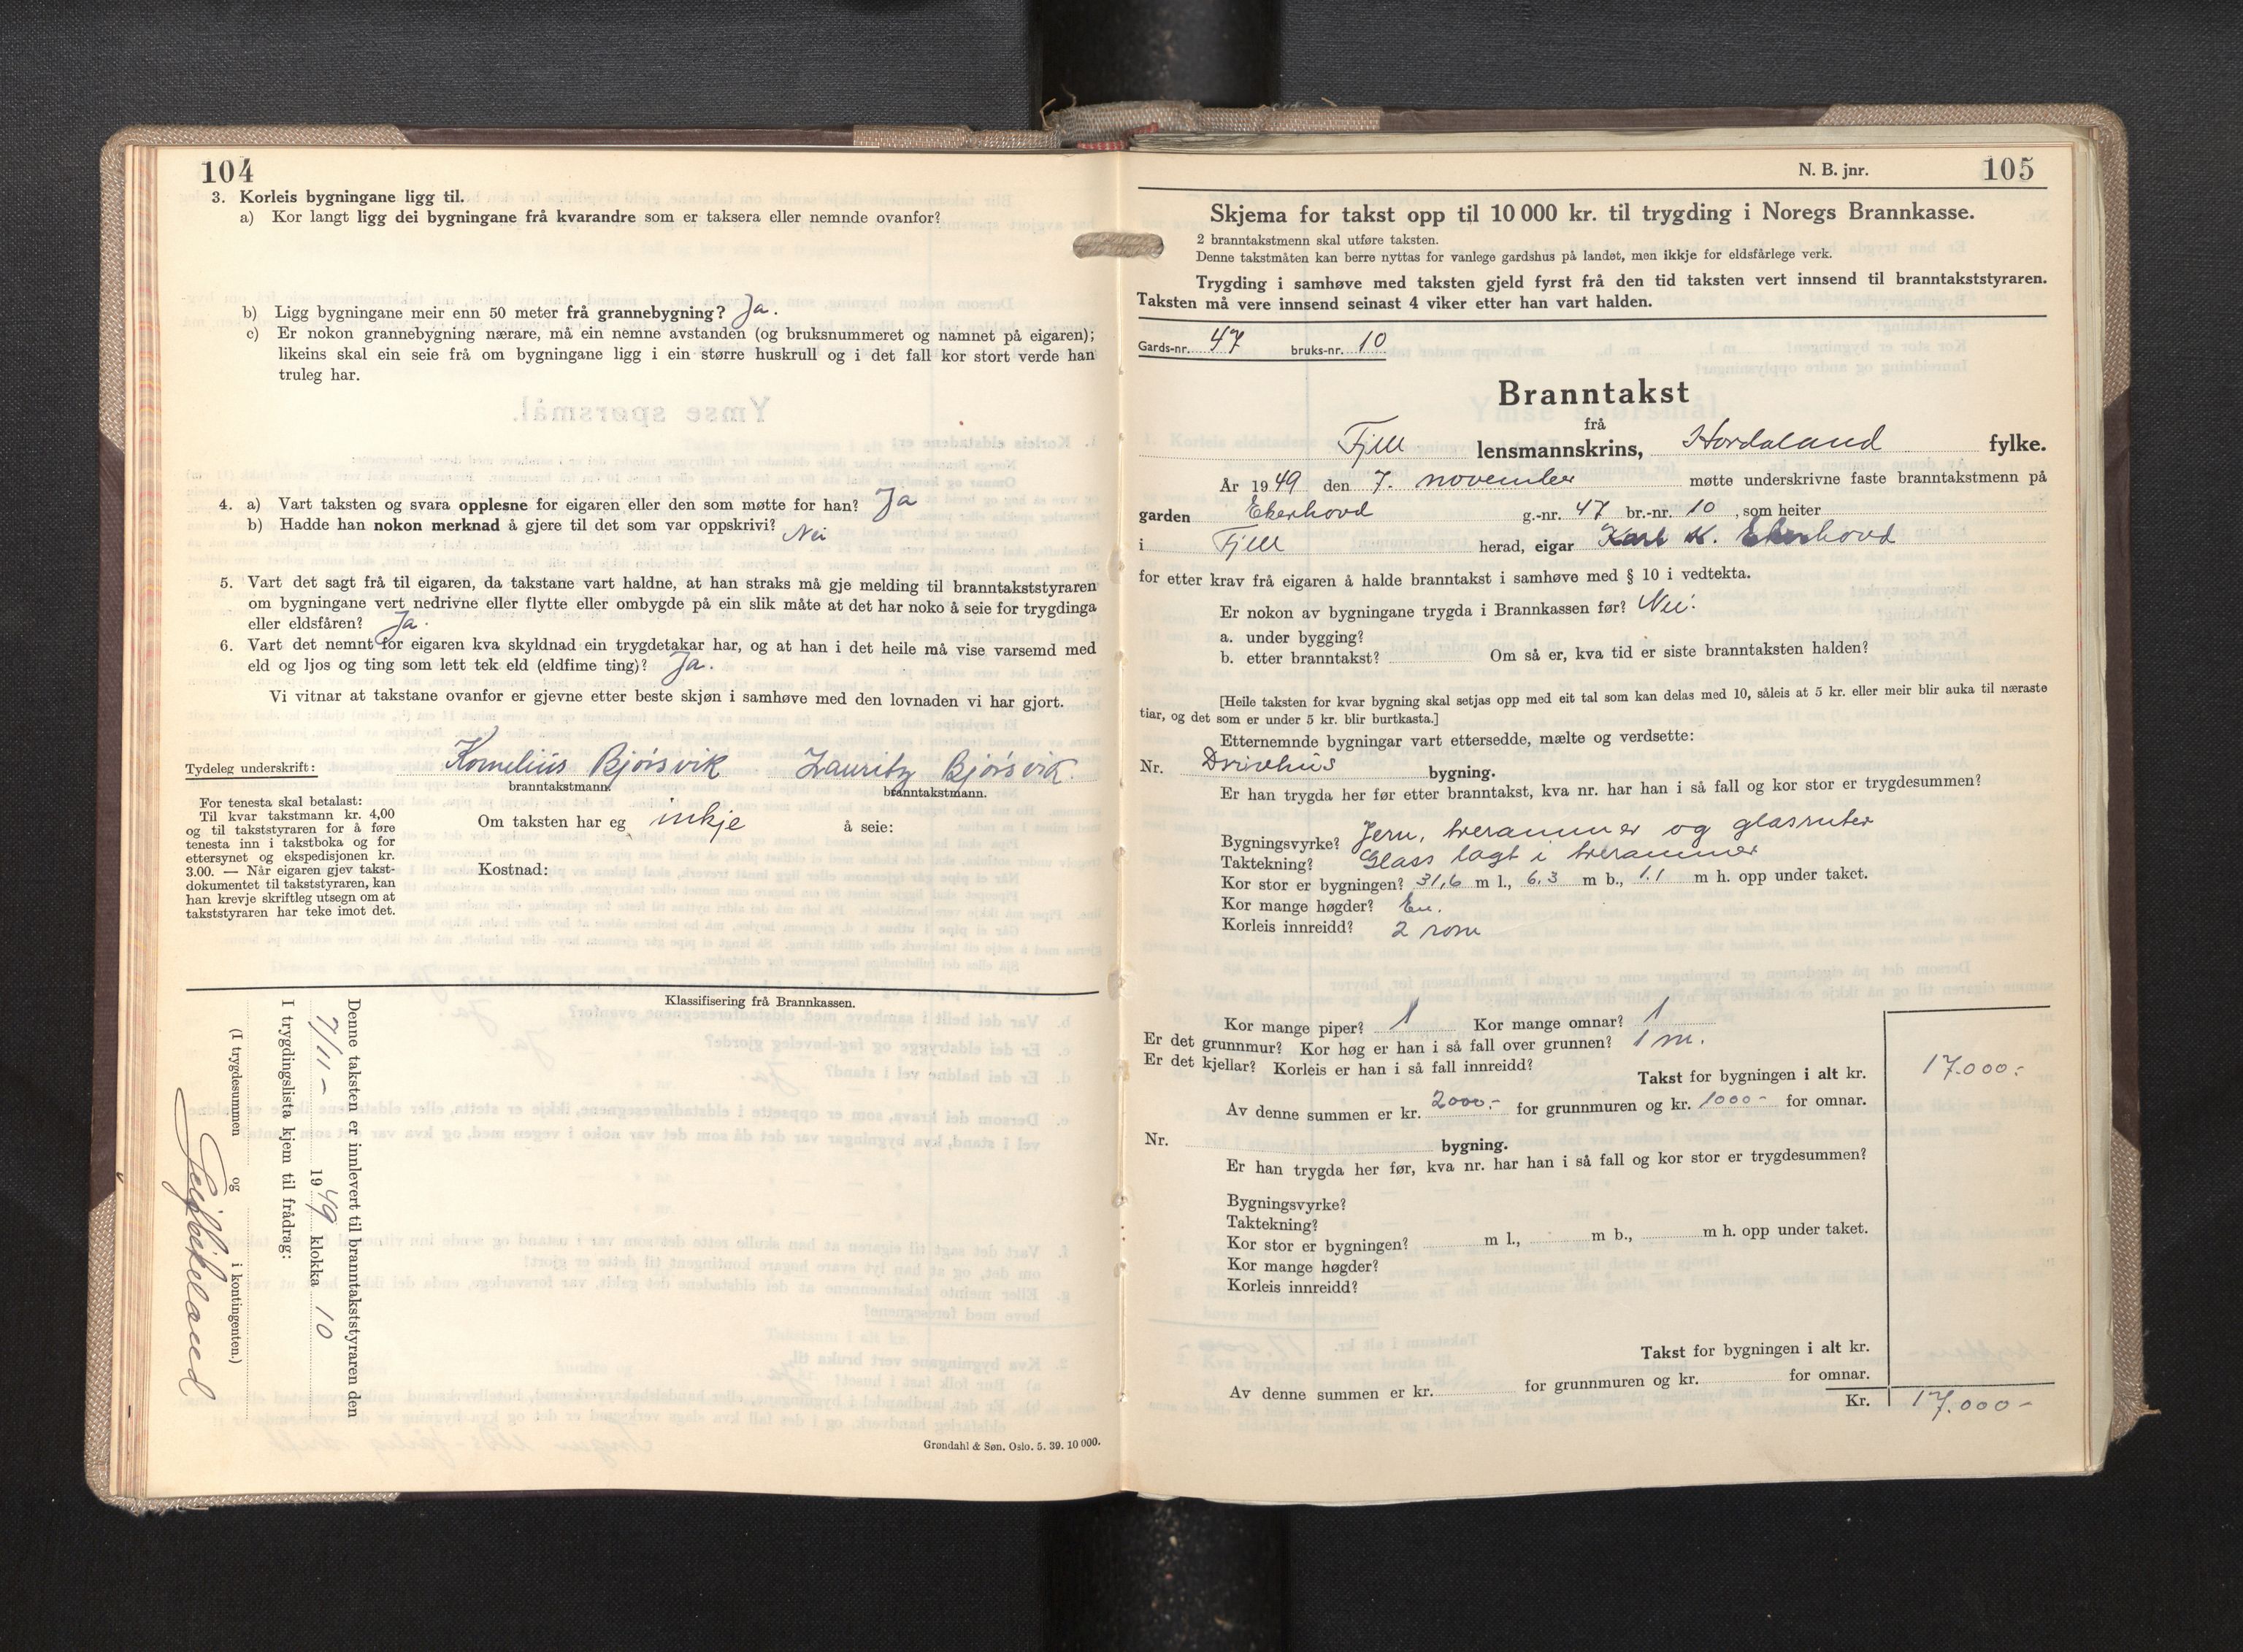 104
3. Korleis bygningane ligg til.
a) Kor langt ligg dei bygningane frå kvarandre som er taksera eller nemnde ovanfor?
b) Ligg bygningane meir enn 50 meter frå grannebygning? Ja.
c) Er nokon grannebygning nærare, må ein nemne avstanden (og bruksnummeret og namnet på eigaren);
likeins skal ein seie frå om bygningane ligg i ein større huskrull og i det fall kor stort verde han
truleg har.
4. a) Vart taksten og svara opplesne for eigaren eller den som møtte for han? Ja
b) Hadde han nokon merknad å gjere til det som var oppskrivi? Nei
5. Vart det sagt frå til eigaren, da takstane vart haldne, at han straks må gje melding til branntakststyraren
om bygningane vert nedrivne eller flytte eller ombygde på ein slik måte at det har noko å seie for trygdinga
eller eldsfåren? Ja.
6. Vart det nemnt for eigaren kva skyldnad ein trygdetakar har, og at han i det heile må vise varsemd med
eld og ljos og ting som lett tek eld (eldfime ting)? Ja.
Vi vitnar at takstane ovanfor er gjevne etter beste skjøn i samhøve med den lovnaden vi har gjort.
Tydeleg underskrift: Kornelius Bjørsvik Lauritz Bjørsvik.
branntakstmann. branntakstmann.
For tenesta skal betalast:
Til kvar takstmann kr. 4,00
og til takststyraren for å føre
tenesta inn i takstboka og for
ettersynet og ekspedisjonen kr.
3.00. — Når eigaren gjev takst-
dokumentet til takststyraren, kan
han krevje skriftleg utsegn om at
takststyraren har teke imot det.
Om taksten har eg inkje å seie:
Kostnad:
Klassifisering frå Brannkassen.
Denne taksten er innlevert til branntakststyraren den
7/11 - 1949 klokka 10
I trygdingslista kjem til frådrag:
(I trygdesummen og i kontingenten.)
Grøndahl & Søn. Oslo. 5. 39. 10 000.
N. B. jnr. 105
Skjema for takst opp til 10 000 kr. til trygding i Noregs Brannkasse.
2 branntakstmenn skal utføre taksten.
Denne takstmåten kan berre nyttas for vanlege gardshus på landet, men ikkje for eldsfårlege verk.
Trygding i samhøve med taksten gjeld fyrst frå den tid taksten vert innsend til branntakststyraren.
Taksten må vere innsend seinast 4 viker etter han vart halden.
Gards-nr. 47 bruks-nr. 10
Branntakst
frå
Fjell lensmannskrins, Hordaland fylke.
År 1949 den 7. november møtte underskrivne faste branntakstmenn på
garden Ekerhovd g.-nr. 47 br.-nr. 10, som heiter
i Fjell herad, eigar Karl K. Ekerhovd
for etter krav frå eigaren å halde branntakst i samhøve med § 10 i vedtekta.
Er nokon av bygningane trygda i Brannkassen før? Nei.
a. under bygging?
b. etter branntakst? Om så er, kva tid er siste branntaksten halden?
[Heile taksten for kvar bygning skal setjas opp med eit tal som kan delas med 10, såleis at 5 kr. eller meir blir auka til næraste
tiar, og det som er under 5 kr. blir burtkasta.]
Etternemnde bygningar vart ettersedde, mælte og verdsette:
Nr. Drivhus bygning.
Er han trygda her før etter branntakst, kva nr. har han i så fall og kor stor er trygdesummen?
Bygningsvyrke? Jern, trerammer og glasruter
Taktekning? Glass lagt i trerammer
Kor stor er bygningen? 31,6 m l., 6,3 m b., 1.1 m h. opp under taket.
Kor mange høgder? En.
Korleis innreidd? 2 rom
Kor mange piper? 1 Kor mange omnar? 1
Er det grunnmur? Kor høg er han i så fall over grunnen? 1 m.
Er det kjellar? Korleis er han i så fall innreidd?
Takst for bygningen i alt kr. 17.000.-
Av denne summen er kr. 2000.- for grunnmuren og kr. 1000 - for omnar.
Nr. bygning.
Er han trygda her før, kva nr. har han i så fall og kor stor er trygdesummen?
Bygningsvyrke?
Taktekning?
Kor stor er bygningen? m l., m b., m h. opp under taket.
Kor mange høgder?
Korleis innreidd?
Takst for bygningen i alt kr.
Av denne summen er kr. for grunnmuren og kr. for omnar.
Kr. 17.000 -